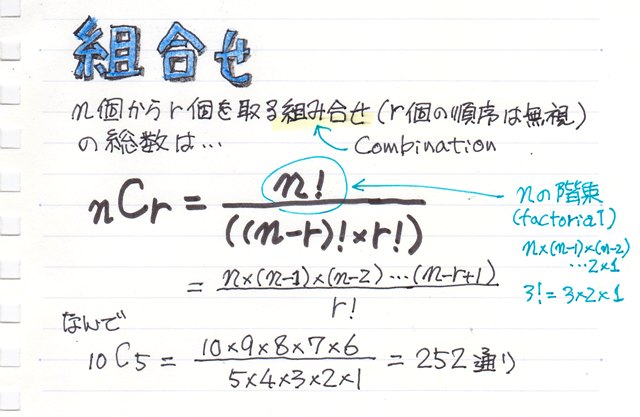 組合せ
n個からr個を取る組み合せ(r個の順序は無視)
の総数は…
Combination
nCr = n! / ((n-r)! × r!)
nの階乗
(factorial)
n×(n-1)×(n-2)
…2×1
3! = 3×2×1
= n×(n-1)×(n-2)…(n-r+1) / r!
なんで
10C5 = 10×9×8×7×6 / 5×4×3×2×1 = 252通り